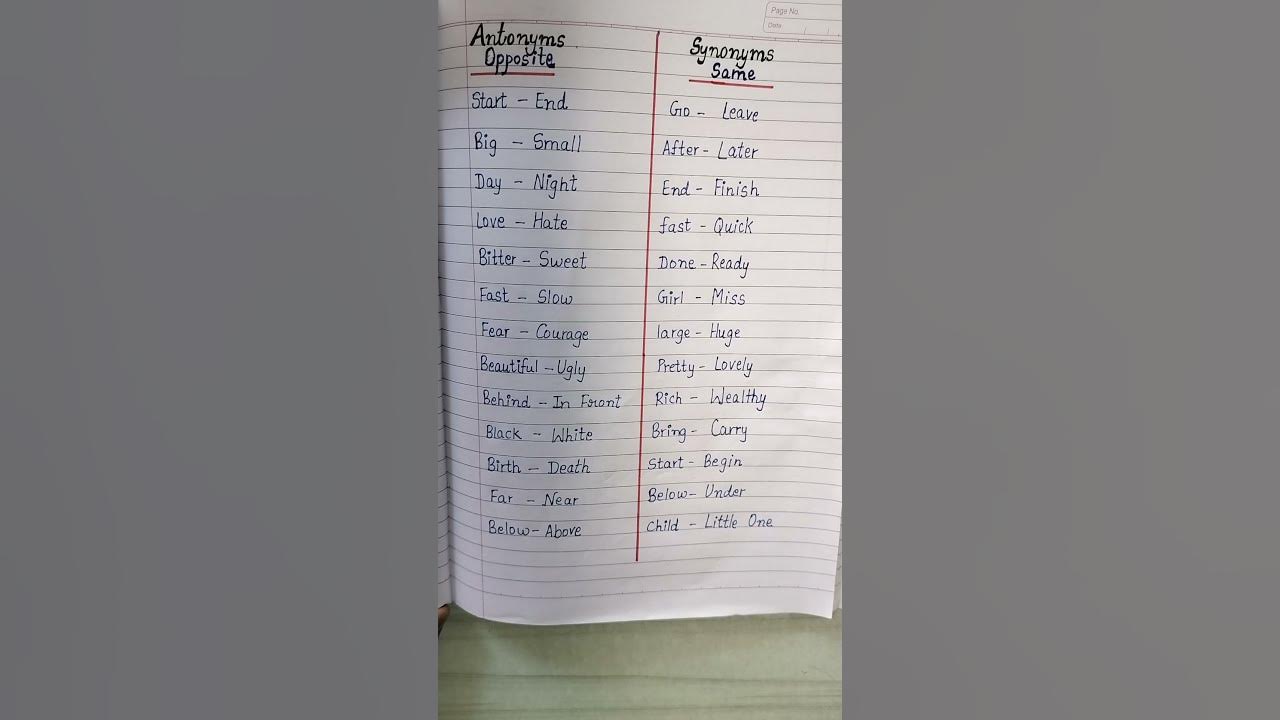 Page No.
Date
Antonyms
Opposite
Start - End
Big - Small
Day - Night
Love - Hate
Bitter - Sweet
Fast - Slow
Fear - Courage
Beautiful - Ugly
Behind - In Front
Black - White
Birth - Death
Far - Near
Below - Above
Synonyms
Same
Go - Leave
After - Later
End - Finish
fast - Quick
Done - Ready
Girl - Miss
large - Huge
Pretty - Lovely
Rich - Wealthy
Bring - Carry
Start - Begin
Below - Under
Child - Little One